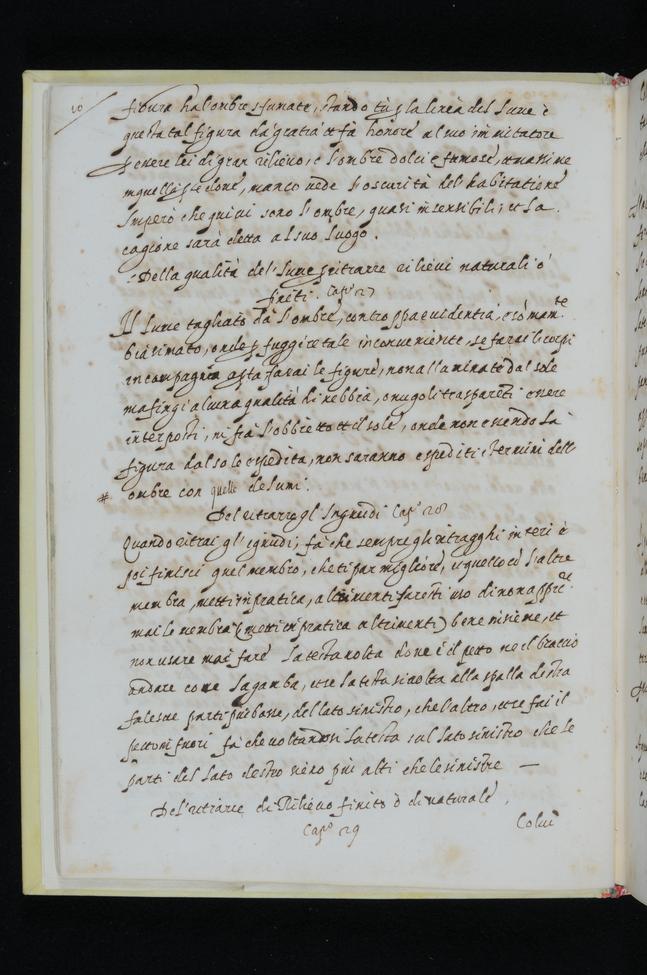 10
figura ha l'ombre sfumate, stando tu p la linea del lume è
questa tal figura dà gratia et fà honore al suo immitatore
p havere lei di gran rilievo, e l'ombre dolci e fumose, et massime
in quella p te dove, manco vede l'oscurità del' habitatione
Imperò che quivi sono l'ombre, quasi insensibili, et la
cagione sarà detta al suo luogo.
Della qualità del' lume p ritrarre rilievi naturali ò
finiti. Cap.º 27
Il lume tagliato da l'ombre, con tro ppa evidentia, è som'am.te
biasimato, onde p fuggire tale inconveniente, se farai li corpi
in compagnia ap ta farai le figure, non alluminate dal sole
ma fingi alcuna qualità di nebbia, o nugoli trasparēti essere
interposti, in frà l'obbietto et il sole, onde non essendo la
figura dal sole espedita, non saranno espediti i termini dell
# ombre con quelle de lumi.
Del ritrarre gl' Ingnudi Cap.º 28
Quando ritrai gl' ignudi, fà che sempre gli ritragghi interi è
poi finisci quel membro, che ti par migliore, e quello cō l'altre
membra, metti in pratica, altrimenti faresti uso di non appic.re
mai le membra (metti in pratica altrimenti) bene insieme, et
non usare mai fare la testa volta dove è il petto ne il braccio
andare come la gamba, et se la testa si volta alla spalla destra
fa le sue parti piu basse, del lato sinistro, che l'altro, et se fai il
petto in fuori fà che voltandosi la testa sul lato sinistro che le
parti del lato destro sieno piu alti che le sinistre —
Del' ritrarre di Rilievo finito ò di naturale.
Cap.º 29
Colui